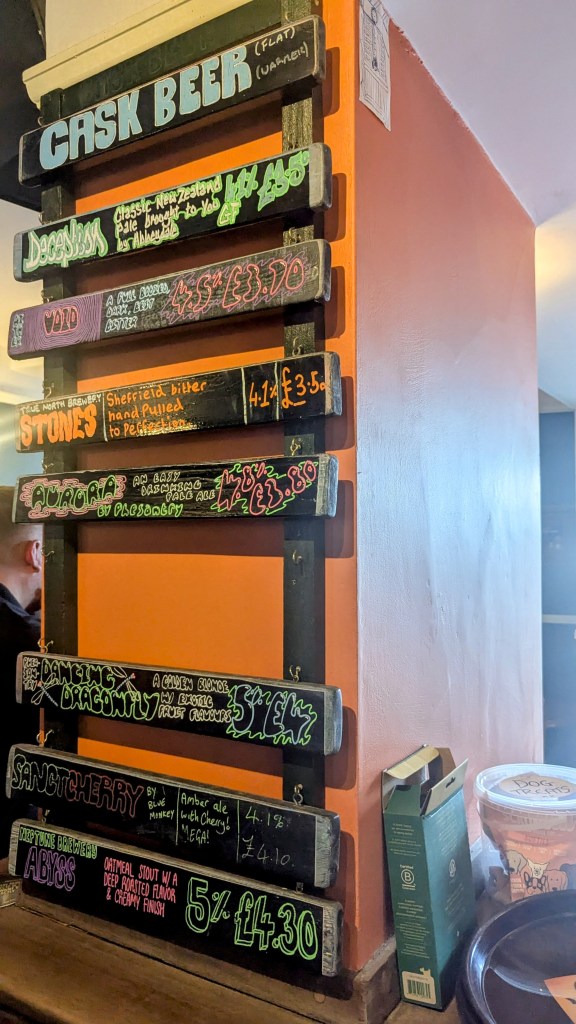 CASK BEER
(FLAT)
(WARMER)
Deception
Classic New Zealand
Pale brought to You
by Abbeydale
4.1% £3.50
GF
VOID
A FULL BODIED,
DARK, BEST
BITTER
4.5% £3.70
TRUE NORTH BREWERY
STONES
Sheffield bitter
hand pulled
to perfection.
4.1% £3.50
AURORA
AN EASY
DRINKING
PALE ALE
BY PHEASANTRY
£3.80
DANCING
DRAGONFLY
A GOLDEN BLONDE
W/ EXOTIC
FRUIT FLAVOURS
5% £4
SANCTCHERRY
BY
BLUE
MONKEY
Amber ale
with Cherry!
MEGA!
4.1%
£4.10.
NEPTUNE BREWERY
ABYSS
OATMEAL STOUT W/ A
DEEP ROASTED FLAVOR
& CREAMY FINISH
5% £4.30
Certified
B
Corporation
DOG
TREATS